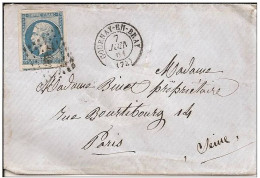 GOURNAY-EN-BRAY
7
JUIN
61
(74)
Madame
Madame Binot Propriétaire
Rue Bourtibourg 14
Paris
(Seine)